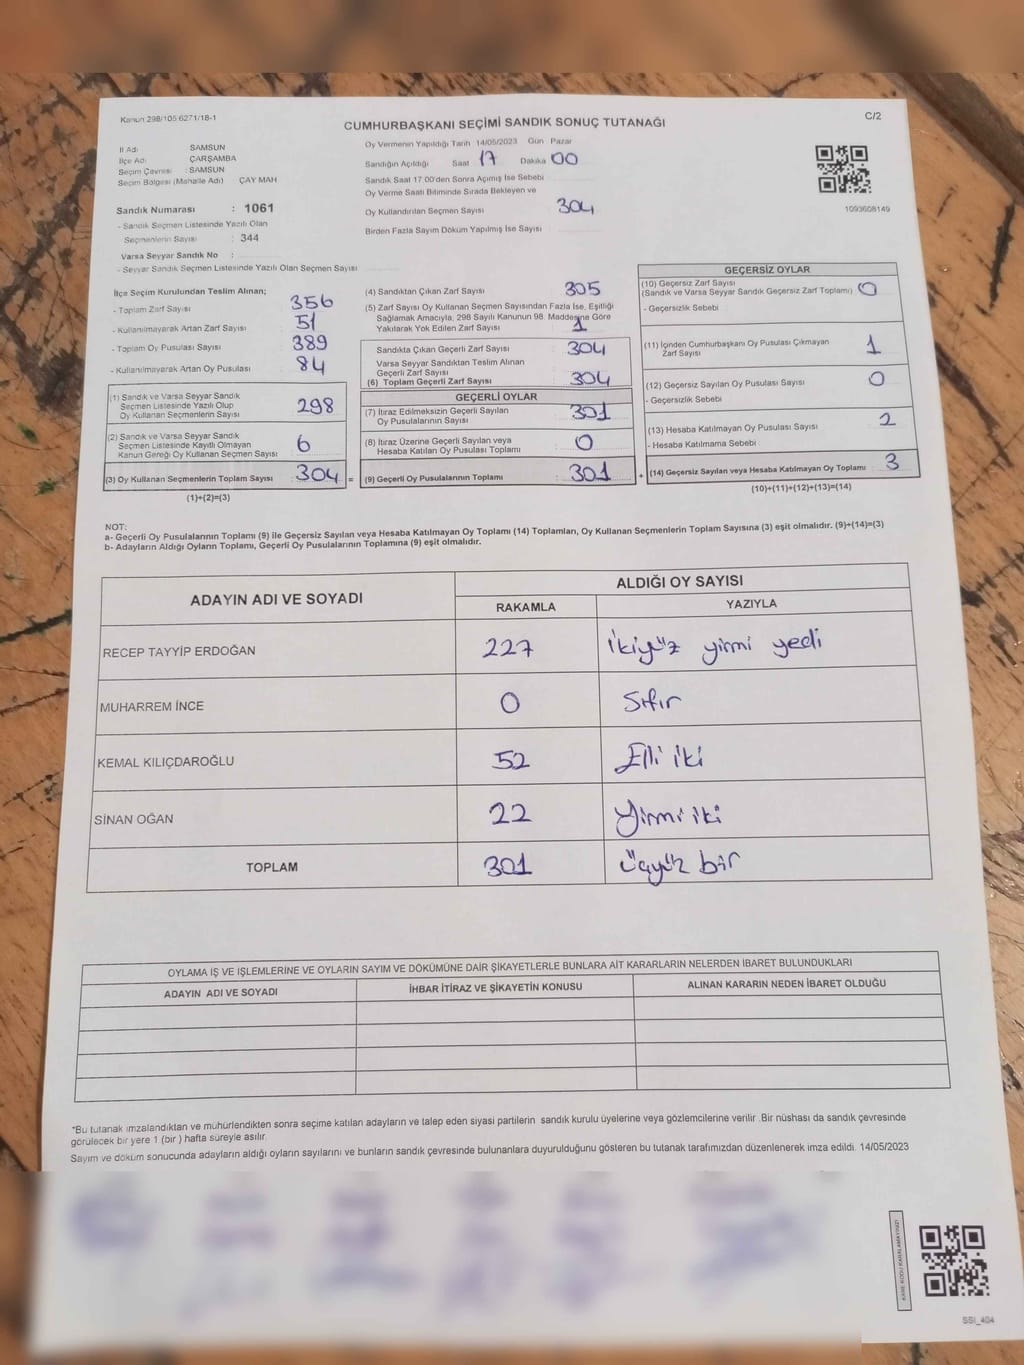 Kanun 298/105 6271/18-1
C/2
CUMHURBAŞKANI SEÇİMİ SANDIK SONUÇ TUTANAĞI
İl Adı SAMSUN
İlçe Adı ÇARŞAMBA
Seçim Çevresi : SAMSUN
Seçim Bölgesi (Mahalle Adı) ÇAY MAH
Sandık Numarası : 1061
- Sandık Seçmen Listesinde Yazılı Olan
Seçmenlerin Sayısı : 344
Varsa Seyyar Sandık No :
- Seyyar Sandık Seçmen Listesinde Yazılı Olan Seçmen Sayısı
Oy Vermenin Yapıldığı Tarih 14/05/2023 Gün Pazar
Sandığın Açıldığı Saat 17 Dakika 00
Sandık Saat 17.00'den Sonra Açılmış İse Sebebi
Oy Verme Saati Bitiminde Sırada Bekleyen ve
Oy Kullandırılan Seçmen Sayısı 304
Birden Fazla Sayım Döküm Yapılmış İse Sayısı
1093608149
İlçe Seçim Kurulundan Teslim Alınan;
- Toplam Zarf Sayısı 356
- Kullanılmayarak Artan Zarf Sayısı 51
- Toplam Oy Pusulası Sayısı 389
- Kullanılmayarak Artan Oy Pusulası 84
(1) Sandık ve Varsa Seyyar Sandık
Seçmen Listesinde Yazılı Olup
Oy Kullanan Seçmenlerin Sayısı 298
(2) Sandık ve Varsa Seyyar Sandık
Seçmen Listesinde Kayıtlı Olmayan
Kanun Gereği Oy Kullanan Seçmen Sayısı 6
(3) Oy Kullanan Seçmenlerin Toplam Sayısı 304 =
(1)+(2)=(3)
(4) Sandıktan Çıkan Zarf Sayısı 305
(5) Zarf Sayısı Oy Kullanan Seçmen Sayısından Fazla İse, Eşitliği
Sağlamak Amacıyla, 298 Sayılı Kanunun 98. Maddesine Göre
Yakılarak Yok Edilen Zarf Sayısı 1
Sandıkta Çıkan Geçerli Zarf Sayısı : 304
Varsa Seyyar Sandıktan Teslim Alınan
Geçerli Zarf Sayısı
(6) Toplam Geçerli Zarf Sayısı 304
GEÇERLİ OYLAR
(7) İtiraz Edilmeksizin Geçerli Sayılan
Oy Pusulası Sayısı 301
(8) İtiraz Üzerine Geçerli Sayılan veya
Hesaba Katılan Oy Pusulası Toplamı 0
(9) Geçerli Oy Pusulalarının Toplamı : 301 +
GEÇERSİZ OYLAR
(10) Geçersiz Zarf Sayısı
(Sandık ve Varsa Seyyar Sandık Geçersiz Zarf Toplamı) 0
- Geçersizlik Sebebi
(11) İçinden Cumhurbaşkanı Oy Pusulası Çıkmayan
Zarf Sayısı 1
(12) Geçersiz Sayılan Oy Pusulası Sayısı 0
- Geçersizlik Sebebi
(13) Hesaba Katılmayan Oy Pusulası Sayısı 2
- Hesaba Katılmama Sebebi
(14) Geçersiz Sayılan veya Hesaba Katılmayan Oy Toplamı 3
(10)+(11)+(12)+(13)=(14)
NOT:
a- Geçerli Oy Pusulalarının Toplamı (9) ile Geçersiz Sayılan veya Hesaba Katılmayan Oy Toplamı (14) Toplamları, Oy Kullanan Seçmenlerin Toplam Sayısına (3) eşit olmalıdır. (9)+(14)=(3)
b- Adayların Aldığı Oyların Toplamı, Geçerli Oy Pusulalarının Toplamına (9) eşit olmalıdır.
ADAYIN ADI VE SOYADI ALDIĞI OY SAYISI
RAKAMLA YAZIYLA
RECEP TAYYİP ERDOĞAN 227 ikiyüz yirmi yedi
MUHARREM İNCE 0 Sıfır
KEMAL KILIÇDAROĞLU 52 Elli iki
SİNAN OĞAN 22 Yirmi iki
TOPLAM 301 üçyüz bir
OYLAMA İŞ VE İŞLEMLERİNE VE OYLARIN SAYIM VE DÖKÜMÜNE DAİR ŞİKAYETLERLE BUNLARA AİT KARARLARIN NELERDEN İBARET BULUNDUKLARI
ADAYIN ADI VE SOYADI İHBAR İTİRAZ VE ŞİKAYETİN KONUSU ALINAN KARARIN NEDEN İBARET OLDUĞU
*Bu tutanak imzalandıktan ve mühürlendikten sonra seçime katılan adayların ve talep eden siyasi partilerin sandık kurulu üyelerine veya gözlemcilerine verilir. Bir nüshası da sandık çevresinde
görülecek bir yere 1 (bir) hafta süreyle asılır.
Sayım ve döküm sonucunda adayların aldığı oyların sayılarını ve bunların sandık çevresinde bulunanlara duyurulduğunu gösteren bu tutanak tarafımızdan düzenlenerek imza edildi. 14/05/2023
KARE KODU KARALAMAYINIZ!
SSİ_404